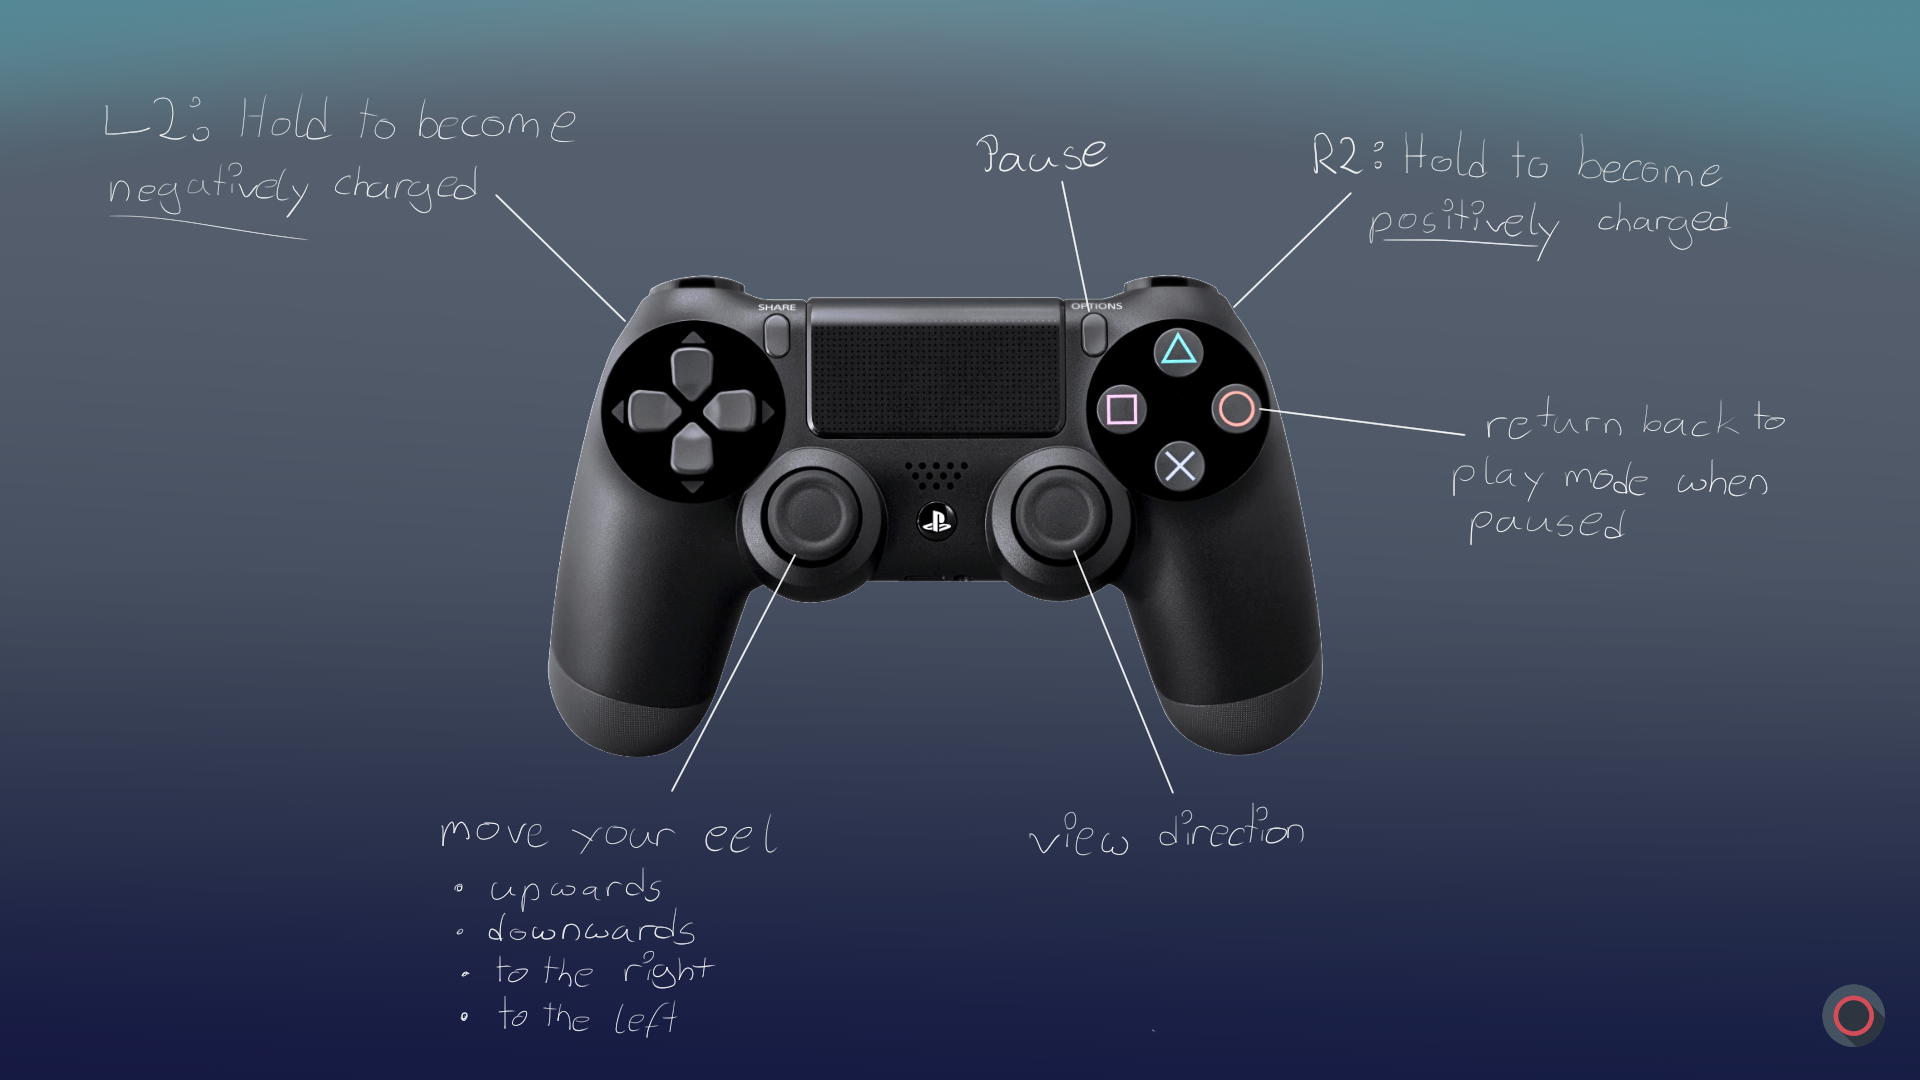 L2: Hold to become
negatively charged
Pause
R2: Hold to become
positively charged
SHARE
OPTIONS
return back to
play mode when
paused
move your eel
• upwards
• downwards
• to the right
• to the left
view direction